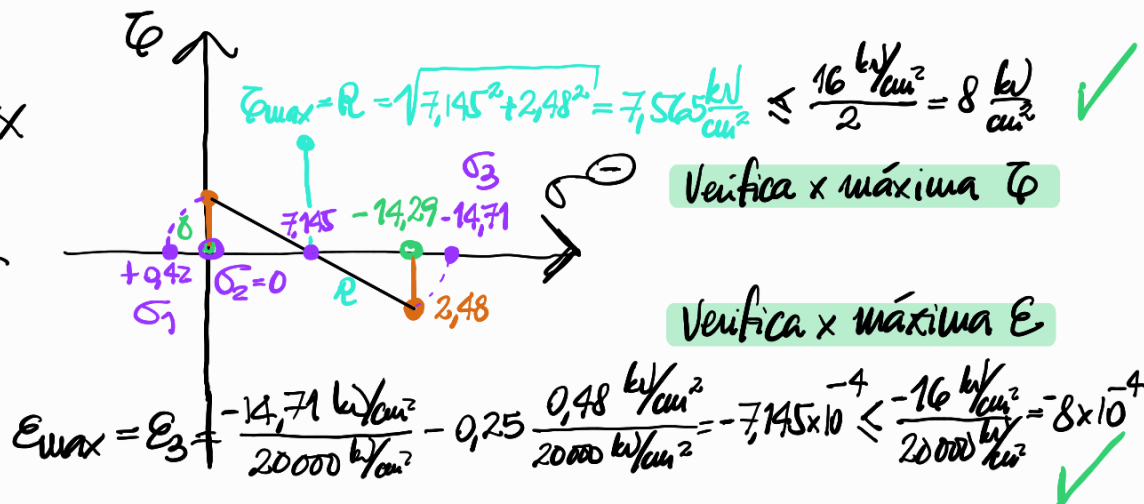 τ
x
τmax = R = √7,145² + 2,48² = 7,565 kN/cm² ≤ 16 kN/cm² / 2 = 8 kN/cm² ✓
σ3
σ
-
Verifica x máxima τ
8
7,145
-14,29
-14,71
+0,42
σ2=0
σ1
R
2,48
Verifica x máxima ε
εmax = ε3 = -14,71 kN/cm² / 20000 kN/cm² - 0,25 0,48 kN/cm² / 20000 kN/cm² = -7,145x10⁻⁴ ≤ -16 kN/cm² / 20000 kN/cm² = -8x10⁻⁴ ✓